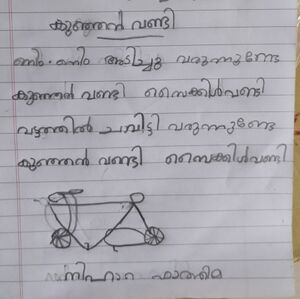 കുഞ്ഞൻ വണ്ടി
ണിം.ണിം അടിച്ചു വരുന്നുണ്ടേ
കുഞ്ഞൻ വണ്ടി സൈക്കിൾവണ്ടി
വട്ടത്തിൽ ചവിട്ടി വരുന്നുണ്ടേ
കുഞ്ഞൻ വണ്ടി സൈക്കിൾവണ്ടി
ഫാത്തിമ